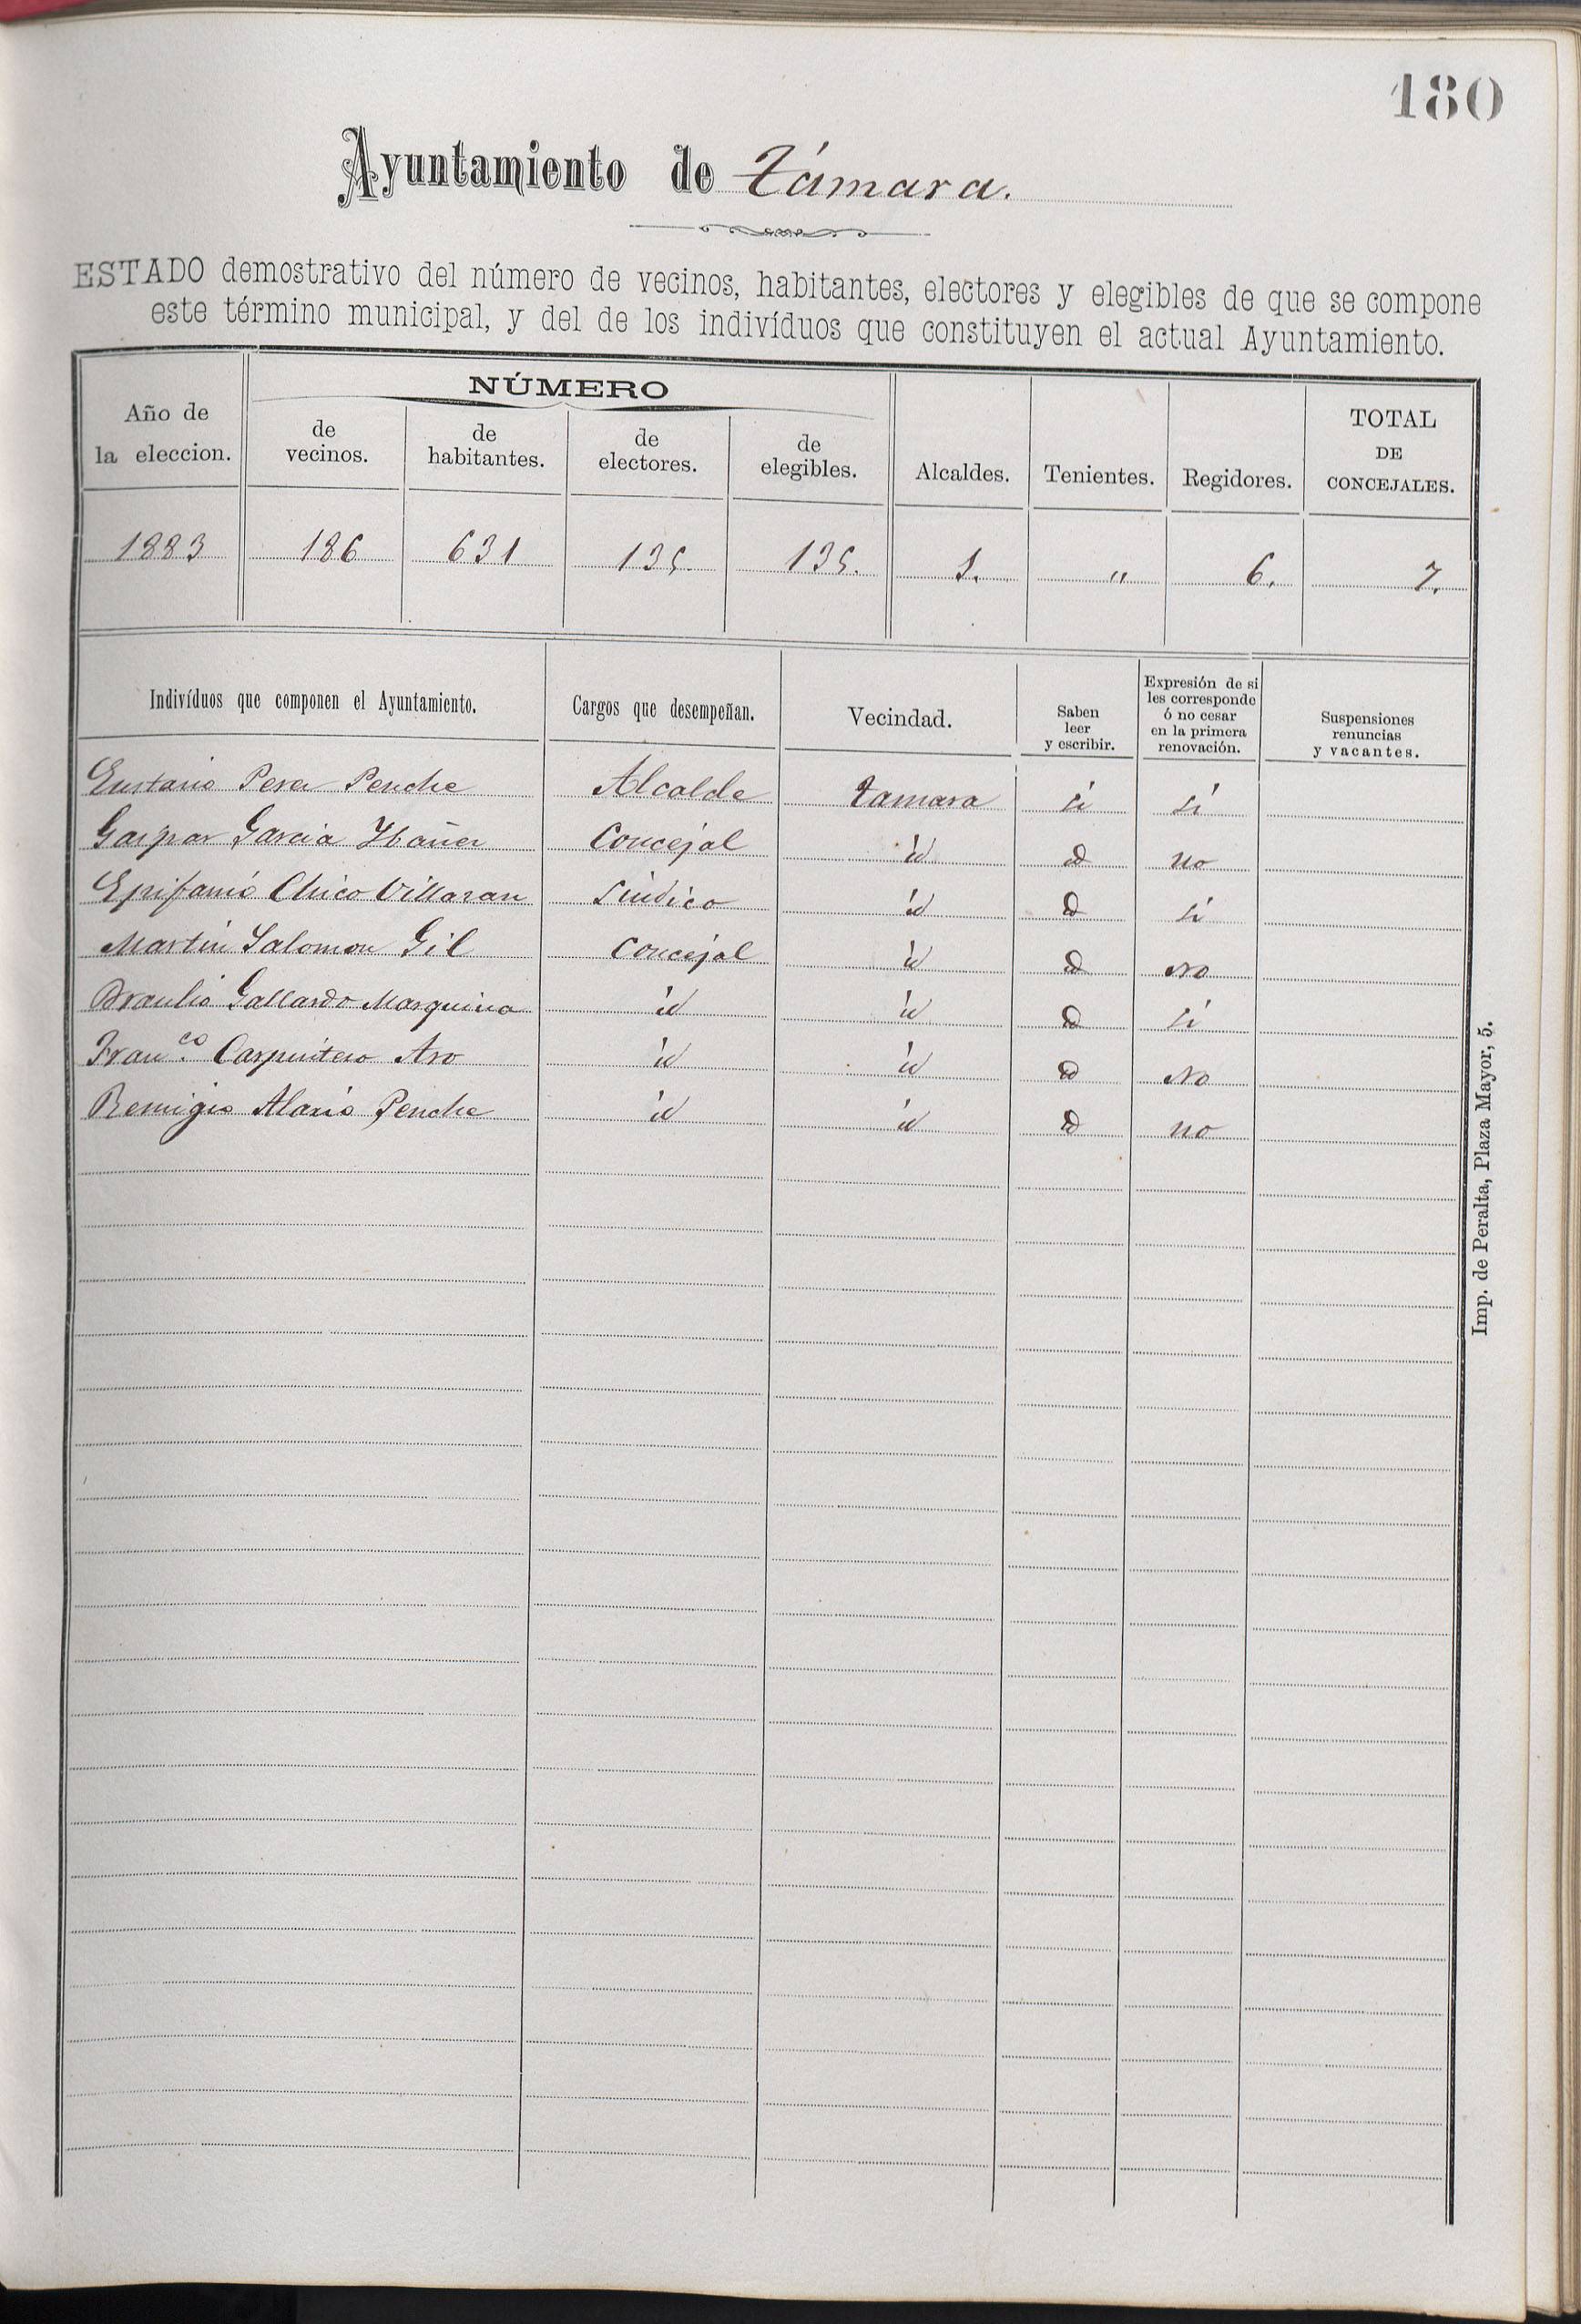 180
Ayuntamiento de Támara.
ESTADO demostrativo del número de vecinos, habitantes, electores y elegibles de que se compone
este término municipal, y del de los indivíduos que constituyen el actual Ayuntamiento.
Año de la eleccion. NÚMERO de vecinos. de habitantes. de electores. de elegibles. Alcaldes. Tenientes. Regidores. TOTAL DE CONCEJALES.
1883 186 631 135. 135. 1. " 6. 7.
Indivíduos que componen el Ayuntamiento. Cargos que desempeñan. Vecindad. Saben leer y escribir. Expresión de si les corresponde ó no cesar en la primera renovación. Suspensiones renuncias y vacantes.
Eustasio Perez Penche Alcalde Tamara si sí
Gaspar Garcia Ybañez Concejal id id no
Epifanio Chico Villaran Sindico id id sí
Martin Salomon Gil Concejal id id No
Braulio Gallardo Marquina id id id sí
Franco. Carpintero Aro id id id No
Remigio Alario Penche id id id no
Imp. de Peralta, Plaza Mayor, 5.